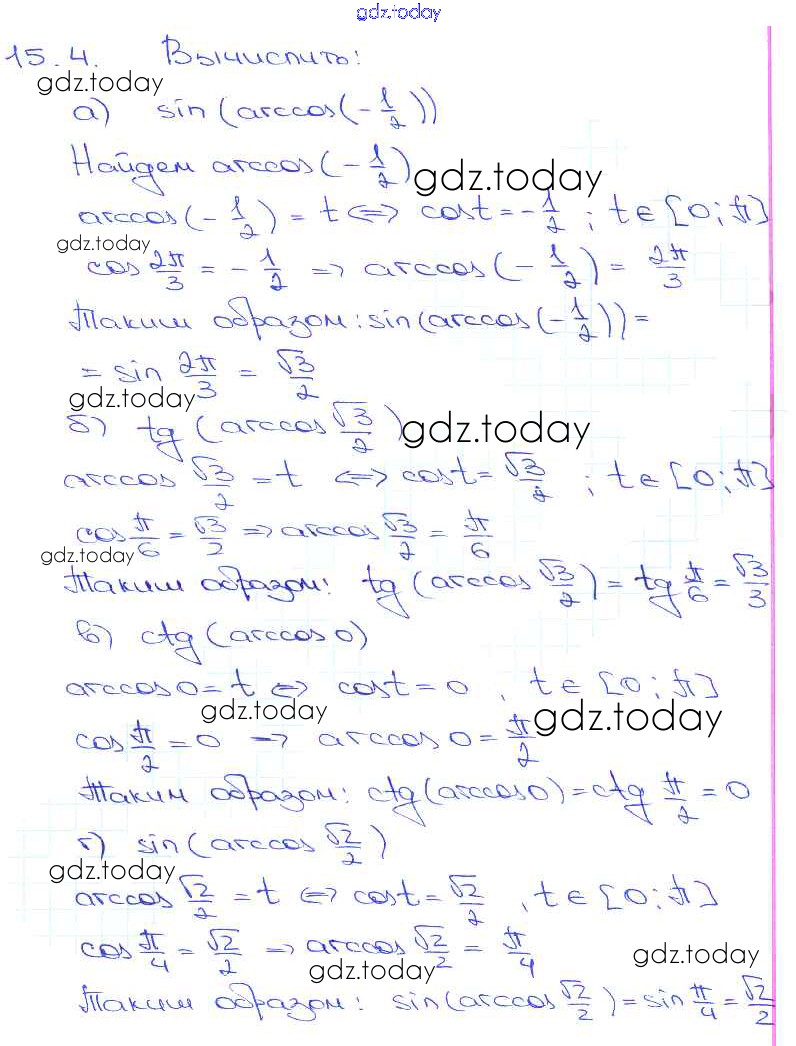 gdz.today
15.4. Вычислить:
gdz.today
а) sin(arccos(-1/2))
Найдем arccos(-1/2)
gdz.today
arccos(-1/2) = t ⇔ cost = -1/2 ; t∈[0;π]
gdz.today
cos 2π/3 = -1/2 ⇒ arccos(-1/2) = 2π/3
Таким образом: sin(arccos(-1/2)) =
= sin 2π/3 = √3/2
gdz.today
б) tg(arccos √3/2)
gdz.today
arccos √3/2 = t ⇔ cost = √3/2 ; t∈[0;π]
cos π/6 = √3/2 ⇒ arccos √3/2 = π/6
gdz.today
Таким образом: tg(arccos √3/2) = tg π/6 = √3/3
в) ctg(arccos 0)
arccos 0 = t ⇔ cost = 0 , t∈[0;π]
gdz.today
gdz.today
cos π/2 = 0 ⇒ arccos 0 = π/2
Таким образом: ctg(arccos 0) = ctg π/2 = 0
г) sin(arccos √2/2)
gdz.today
arccos √2/2 = t ⇔ cost = √2/2 , t∈[0;π]
cos π/4 = √2/2 ⇒ arccos √2/2 = π/4
gdz.today
gdz.today
Таким образом: sin(arccos √2/2) = sin π/4 = √2/2